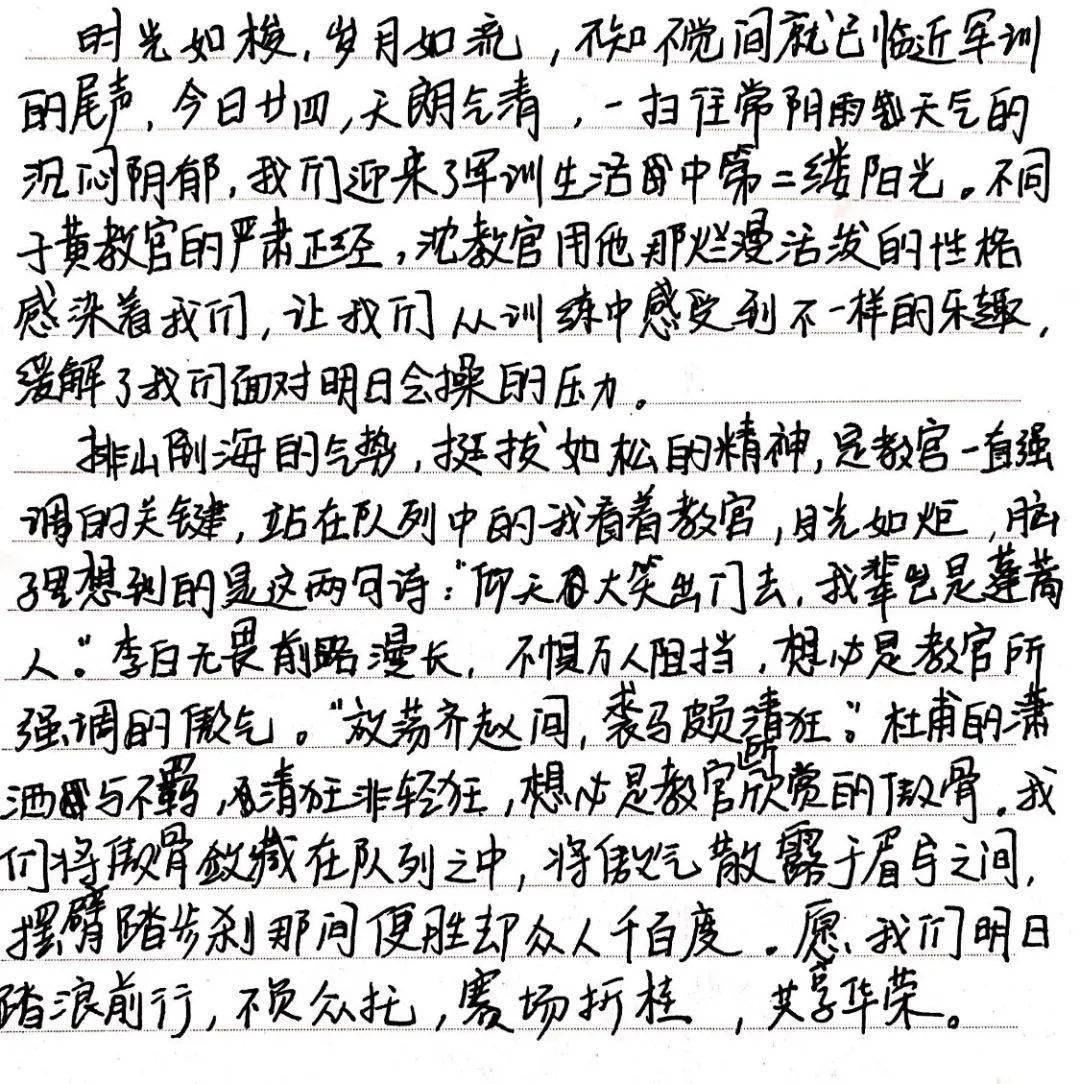 时光如梭，岁月如流，不知不觉间就已临近军训
的尾声，今日廿四，天朗气清，一扫往常阴雨天气的
沉闷阴郁，我们迎来了军训生活中第二缕阳光。不同
于黄教官的严肃正经，沈教官用他那烂漫活泼的性格
感染着我们，让我们从训练中感受到不一样的乐趣，
缓解了我们面对明日会操的压力。
排山倒海的气势，挺拔如松的精神，是教官一直强
调的关键，站在队列中的我看着教官，目光如炬，脑
子里想到的是这两句诗：“仰天大笑出门去，我辈岂是蓬蒿
人。”李白无畏前路漫长，不惧万人阻挡，想必是教官所
强调的傲气。“放荡齐赵间，裘马颇清狂。”杜甫的潇
洒与不羁，清狂非轻狂，想必是教官所欣赏的傲骨。我
们将傲骨敛藏在队列之中，将傲气散露于眉宇之间，
摆臂踏步刹那间便胜却众人千百度。愿我们明日
踏浪前行，不负众托，赛场折桂，共享华荣。